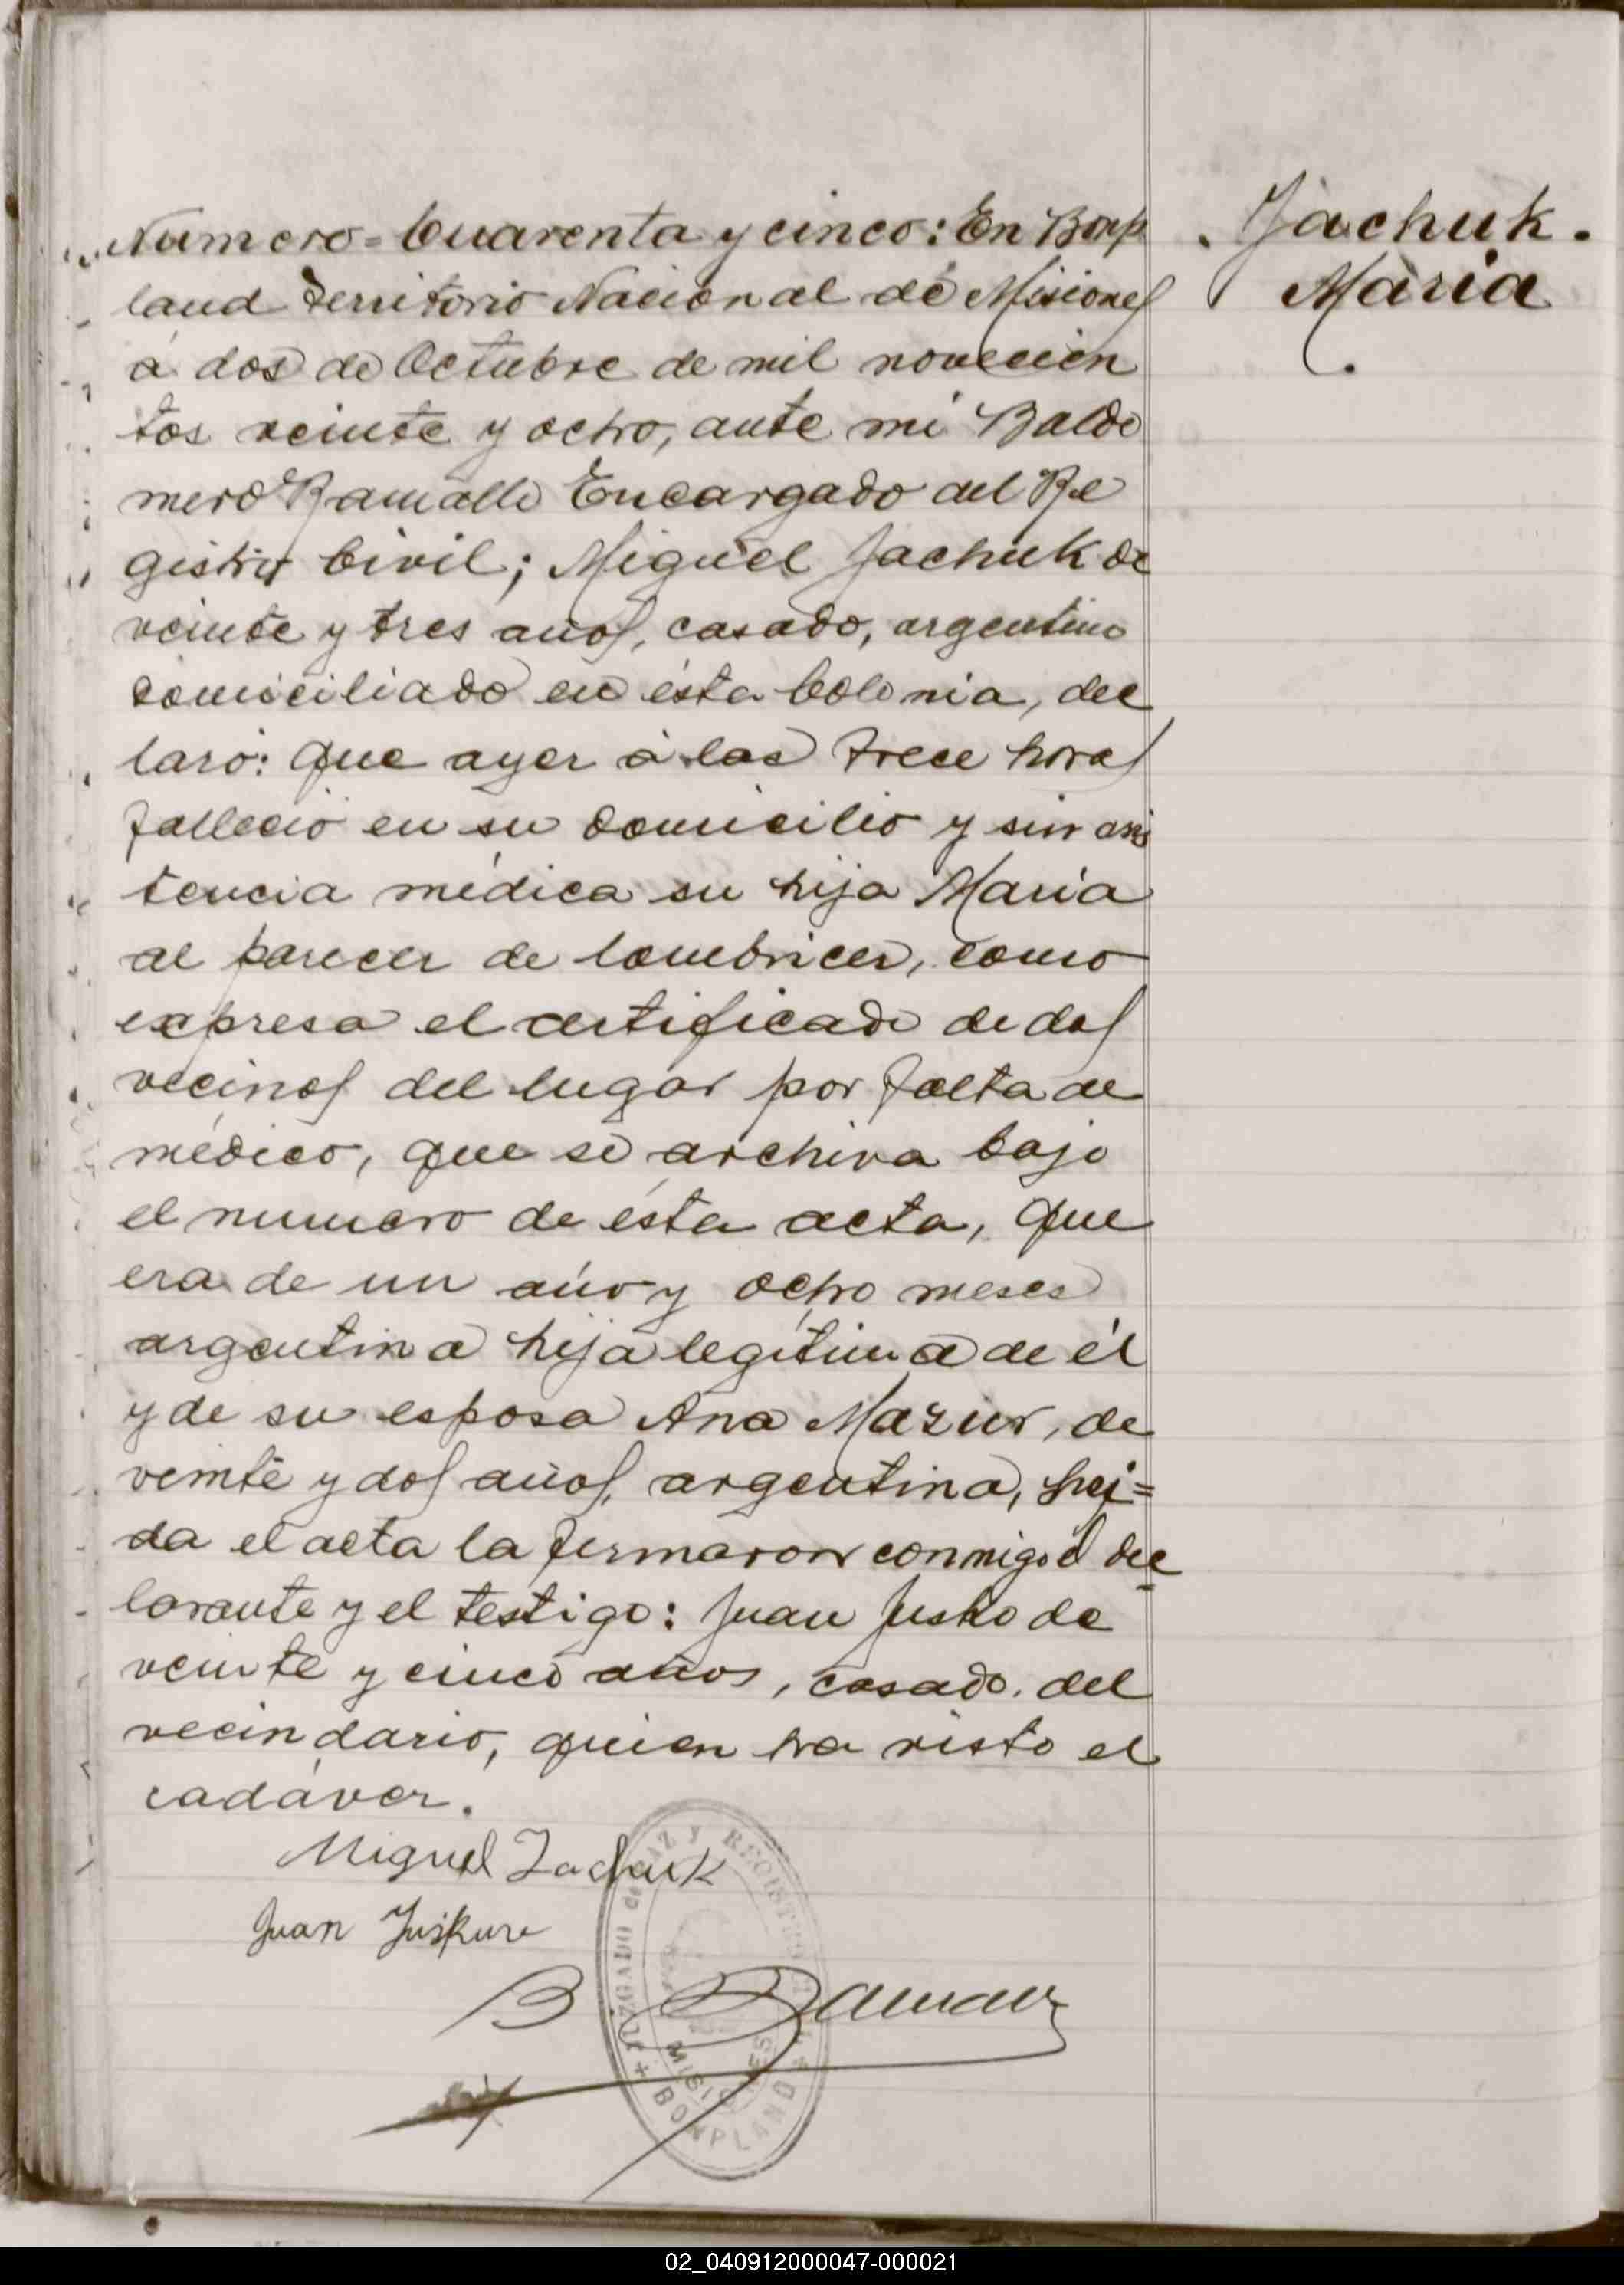 Jachuk.
Maria
Numero = Cuarenta y cinco: En Bonp
land Territorio Nacional de Misiones
á dos de Octubre de mil novecien
tos veinte y ocho, ante mi Baldo
mero Ramallo Encargado del Re
gistro Civil; Miguel Jachuk de
veinte y tres años, casado, argentino
domiciliado en ésta Colonia, dec
laró: Que ayer á las trece horas
falleció en su domicilio y sin asis
tencia médica su hija Maria
al parecer de lombrices, como
expresa el certificado de dos
vecinos del lugar por falta de
médico, que se archiva bajo
el numero de ésta acta, Que
era de un año y ocho meses
argentina hija legítima de él
y de su esposa Ana Mazur, de
veinte y dos años, argentina,
da el acta la firmaron conmigo el dec
larante y el testigo: Juan Jusko de
veinte y cinco años, casado, del
vecindario, quien ha visto el
cadáver.
Miguel Zachuk
Juan
B
JUZGADO de PAZ Y REGISTRO
MISIONES
BONPLAND
02_040912000047-000021